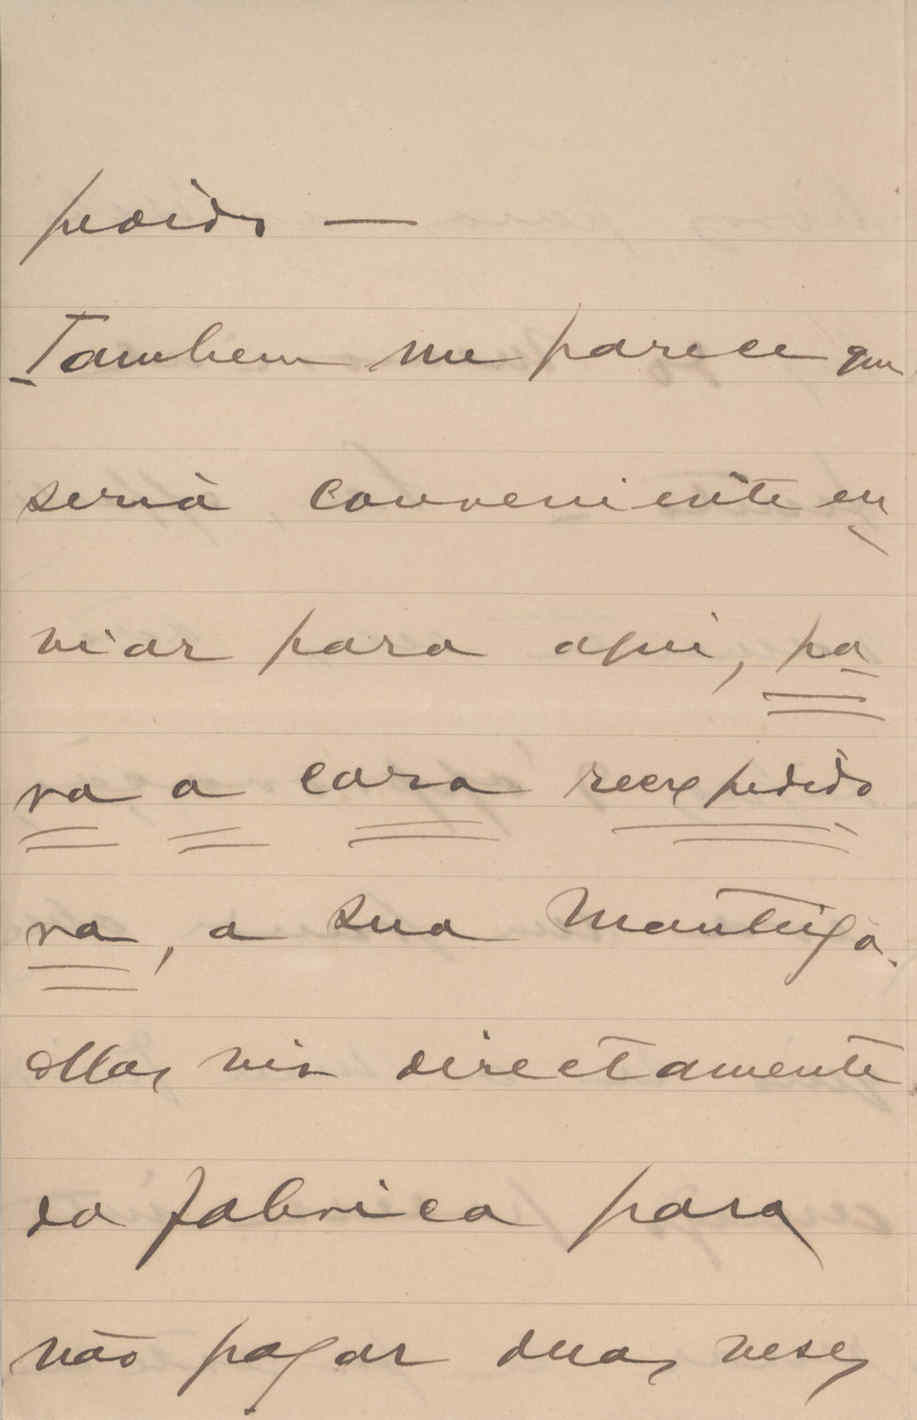 pedido —
Tambem me parece que
seria conveniente en
viar para aqui, pa
ra a casa reexpedido
ra, a sua Manteiga.
Mas vir directamente
da fabrica para
não pagar duas veses